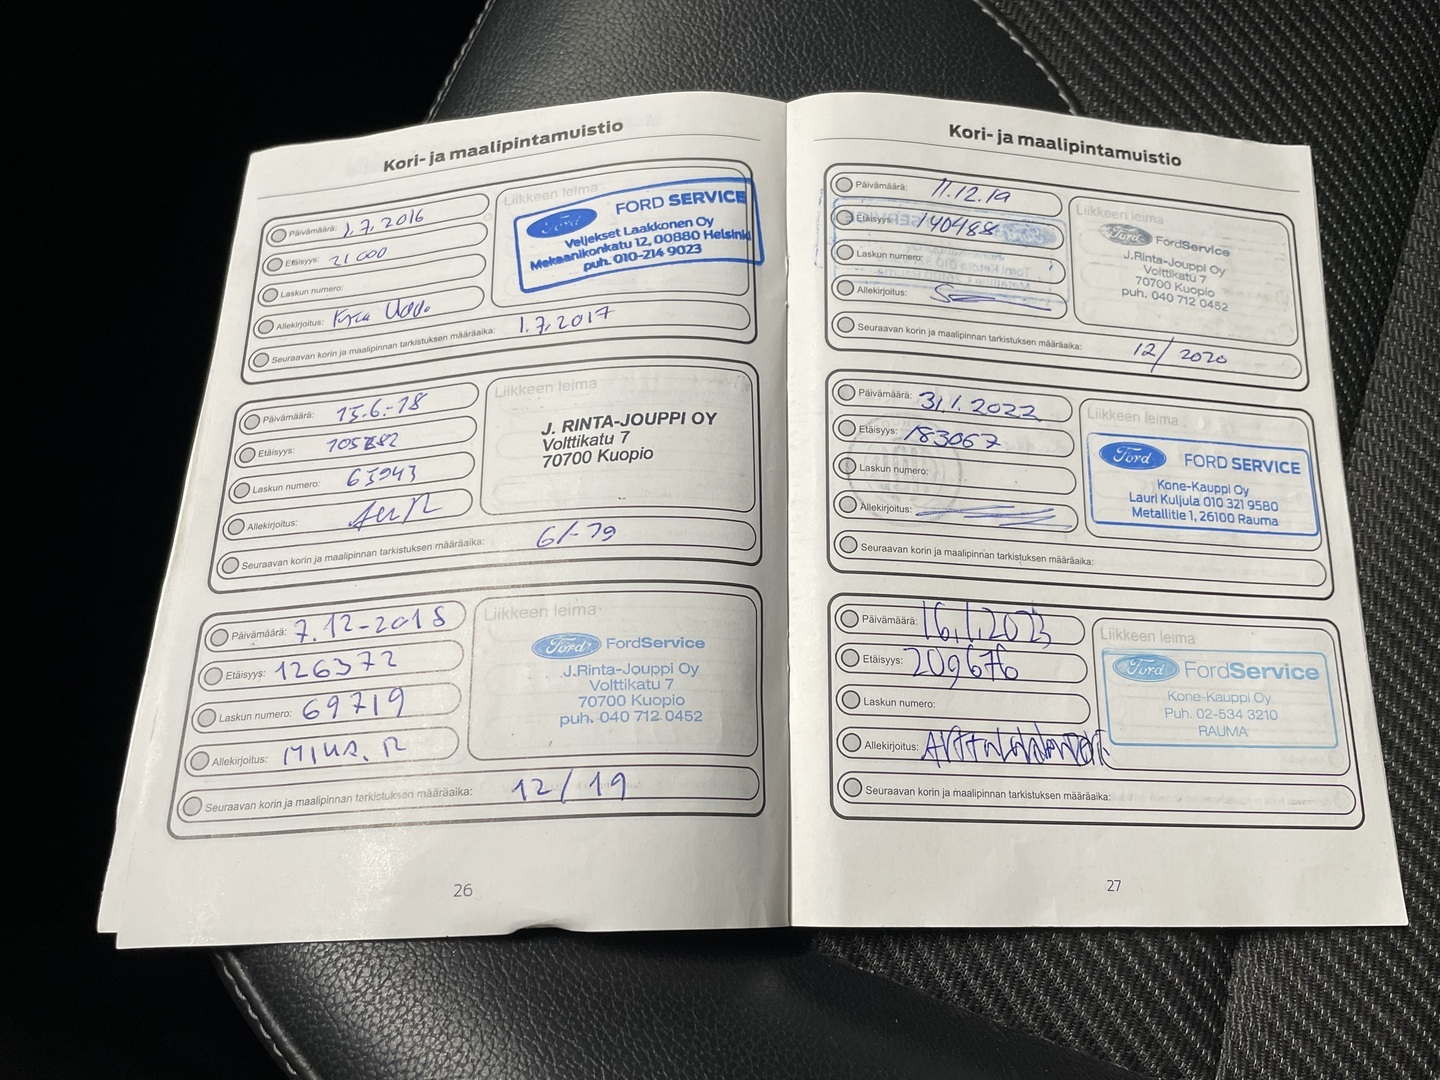 Kori- ja maalipintamuistio
Päivämäärä: 1.7.2016
Etäisyys: 21 000
Laskun numero:
Allekirjoitus:
Liikkeen leima
Ford FORD SERVICE
Veljekset Laakkonen Oy
Mekaanikonkatu 12, 00880 Helsinki
puh. 010-214 9023
Seuraavan korin ja maalipinnan tarkistuksen määräaika: 1.7.2017
Päivämäärä: 15.6.-18
Etäisyys:
Laskun numero: 63943
Allekirjoitus:
Liikkeen leima
J. RINTA-JOUPPI OY
Volttikatu 7
70700 Kuopio
Seuraavan korin ja maalipinnan tarkistuksen määräaika: 6/-19
Päivämäärä: 7.12-2018
Etäisyys: 126372
Laskun numero: 69719
Allekirjoitus: MIKA.R
Liikkeen leima
Ford FordService
J.Rinta-Jouppi Oy
Volttikatu 7
70700 Kuopio
puh. 040 712 0452
Seuraavan korin ja maalipinnan tarkistuksen määräaika: 12/19
26
Kori- ja maalipintamuistio
Päivämäärä: 11.12.19
Etäisyys: 140488
Laskun numero:
Allekirjoitus:
Liikkeen leima
Ford FordService
J.Rinta-Jouppi Oy
Volttikatu 7
70700 Kuopio
puh. 040 712 0452
Seuraavan korin ja maalipinnan tarkistuksen määräaika: 12/2020
Päivämäärä: 31.1.2022
Etäisyys: 183067
Laskun numero:
Allekirjoitus:
Liikkeen leima
Ford FORD SERVICE
Kone-Kauppi Oy
Lauri Kuljula 010 321 9580
Metallitie 1, 26100 Rauma
Seuraavan korin ja maalipinnan tarkistuksen määräaika:
Päivämäärä: 16.1.2023
Etäisyys: 209676
Laskun numero:
Allekirjoitus:
Liikkeen leima
Ford FordService
Kone-Kauppi Oy
Puh. 02-534 3210
RAUMA
Seuraavan korin ja maalipinnan tarkistuksen määräaika:
27